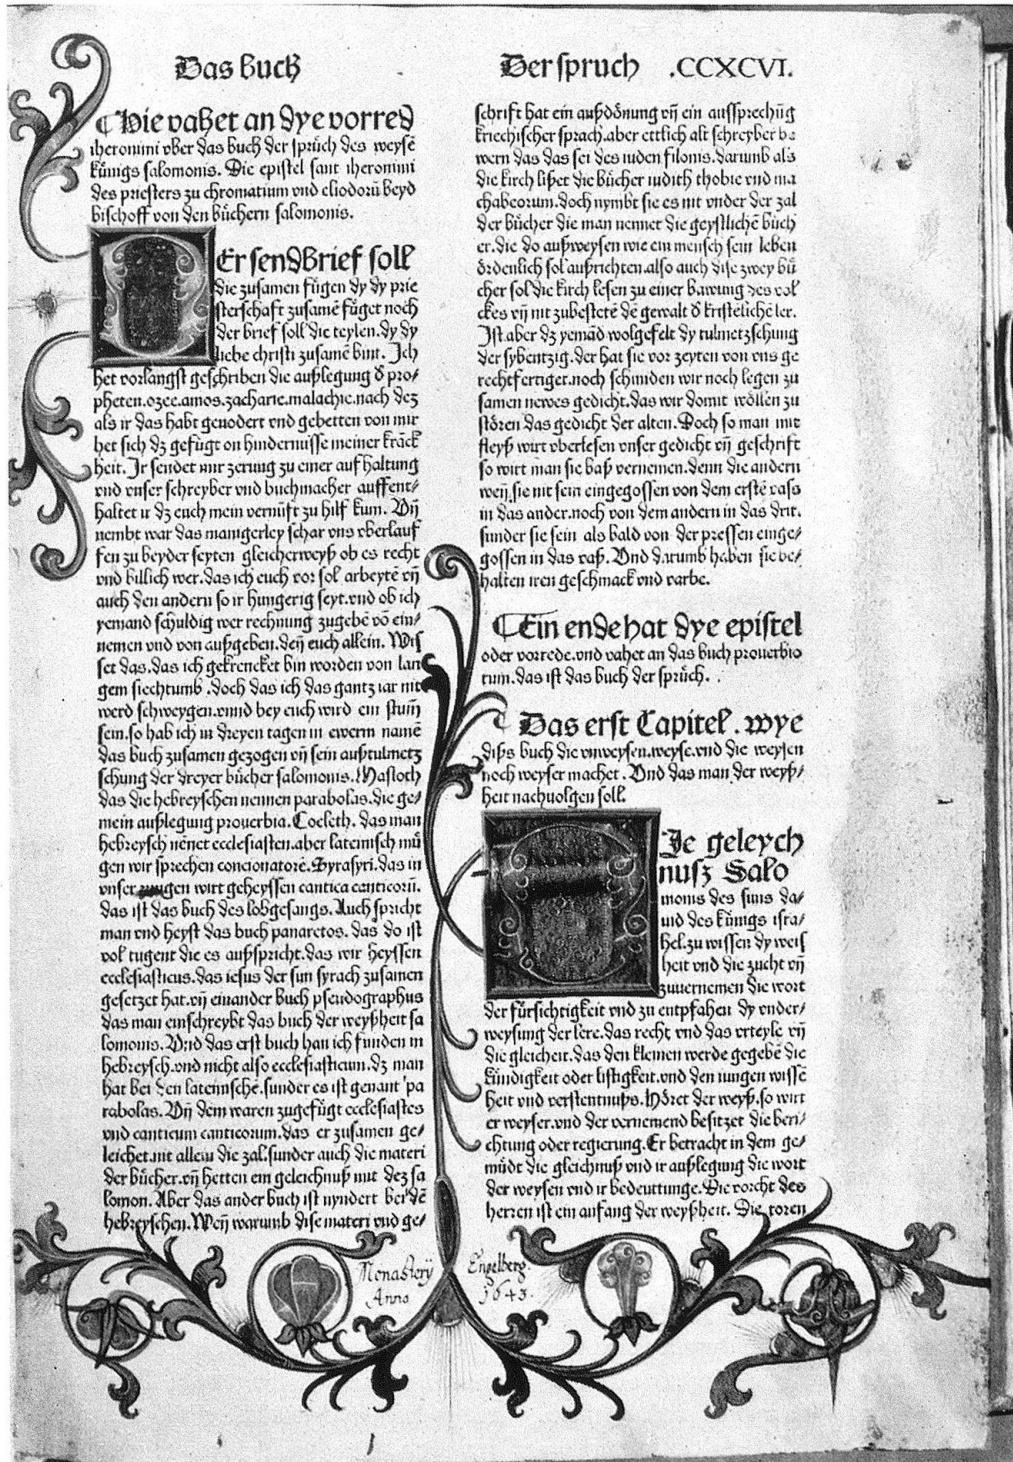 Das buch
Der spruch .CCXCVI.
¶Hie vahet an dye vorred
iheronimi vber das buch der sprüch des weysē
künigs salomonis. Die epistel sant iheronimi
des priesters zu chromatium vnd eliodorū beyd
bischoff von den büchern salomonis.
DEr sendbrief soll
die zusamen fügen dy dy prie
sterschaft zusamē füget noch
der brief soll die teylen. dy dy
liebe christi zusamē bint. Ich
het vorlangst geschriben die außlegung d pro/
pheten. ozee. amos. zacharie. malachie. nach dez
als ir das habt geuodert vnd gebetten von mir
het sich dz gefügt on hindernusse meiner kräck
heit. Ir sendet mir zerung zu einer aufhaltung
vnd vnser schreyber vnd buchmacher auffent/
haltet ir dz euch mein vernüft zu hilf kum. Vn̄
nembt war das manigerley schar vns vberlauf
fen zu beyder seyten gleicherweyß ob es recht
vnd billich wer. das ich euch vor sol arbeytē vn̄
auch den andern so ir hungerig seyt. vnd ob ich
yemand schuldig wer rechnung zugebē vō ein/
nemen vnd von außgeben. den̄ euch allein. Wis
set das. das ich gekrencket bin worden von lan
gem siechtumb. doch das ich das gantz iar nit
werd schweygen. vnnd bey euch wird ein stum̄
sein. so hab ich in dreyen tagen in ewerm namē
das buch zusamen gezogen vn̄ sein außtulmetz
schung der dreyer bücher salomonis. Masloth
das die hebreyschen nennen parabolas. die ge/
mein außlegung prouerbia. Coeleth. das man
hebreysch nēnet ecclesiasten. aber lateinisch mü
gen wir sprechen concionatorē. Syrasyri. das in
vnser zungen wirt geheyssen cantica canticorū.
das ist das buch des lobgesangs. Auch spricht
man vnd heyst das buch panaretos. das do ist
vol tugent die es außspricht. das wir heyssen
ecclesiasticus. das iesus der sun syrach zusamen
gesetzet hat. vn̄ einander buch pseudographus
das man einschreybt das buch der weyßheit sa
lomonis. Vnd das erst buch han ich funden in
hebreysch. vnd nicht also ecclesiasticum. dz man
hat bei den lateinischē. sunder es ist genant pa
rabolas. Vn̄ dem waren zugefügt ecclesiastes
vnd canticum canticorum. das er zusamen ge/
leichet. nit allein die zal. sunder auch die materi
der bücher. vn̄ hetten ein geleichnuß mit dez sa
lomon. Aber das ander buch ist nyndert bei dē
hebreyschen. Wen̄ warumb dise materi vnd ge/
schrift hat ein außdönung vn̄ ein aussprechūg
kriechischer sprach. aber ettlich alt schreyber be
wern das das sei des iuden filonis. darumb als
die kirch lißet die bücher iudith thobie vnd ma
chabeorum. doch nymbt sie es nit vnder der zal
der bücher die man nennet die geystlichē büch
er. die do außweysen wie ein mensch sein leben
ördenlich sol außrichten. also auch dise zwey bü
cher sol die kirch lesen zu einer bawung des vol
ckes vn̄ nit zubestetē dē gewalt d kristelichē ler.
Ist aber dz yemād wolgefelt dy tulmetzschung
der sybentzig. der hat sie vor zeyten von vns ge
rechtfertiget. noch schmiden wir noch legen zu
samen newes gedicht. das wir domit wöllen zu
stören das gedicht der alten. Doch so man mit
fleyß wirt vberlesen vnser gedicht vn̄ geschrift
so wirt man sie baß vernemen. denn die andern
wen̄ sie nit sein eingegossen von dem erstē vass
in das ander. noch von dem andern in das drit.
sunder sie sein als bald von der pressen einge/
gossen in das vaß. Vnd darumb haben sie be/
halten iren geschmack vnd varbe.
¶Ein ende hat dye epistel
oder vorrede. vnd vahet an das buch prouerbio
rum. das ist das buch der sprüch.
¶Das erst Capitel. wye
diß buch die vnweysen. weyse. vnd die weysen
noch weyser machet. Vnd das man der weyß/
heit nachuolgen soll.
DJe geleych
nusz Salo
monis des suns da/
uid des künigs isra/
hel. zu wissen dy weis
heit vnd die zucht vn̄
zuuernemen die wort
der fürsichtigkeit vnd zu entpfahen dy vnder/
weysung der lere. das recht vnd das vrteyle vn̄
die gleicheit. das den kleinen werde gegebē die
kündigkeit oder listigkeit. vnd den iungen wissē
heit vnd verstentnuß. Höret der weyß. so wirt
er weyser. vnd der vernemend besitzet die beri/
chtung oder regierung. Er betracht in dem ge/
müdt die gleichnuß vnd ir außlegung die wort
der weysen vnd ir bedeuttunge. Die vorcht des
herren ist ein anfang der weyßheit. Die toren
Monasterÿ Engelberg.
Anno 1643.